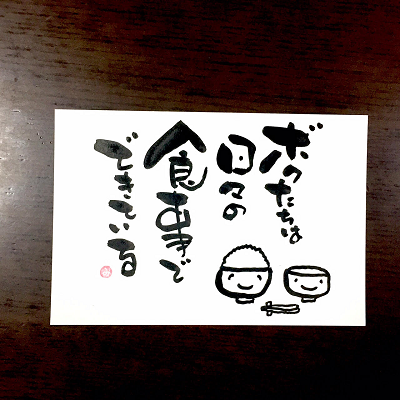 ボクたちは
日々の
食事で
できている